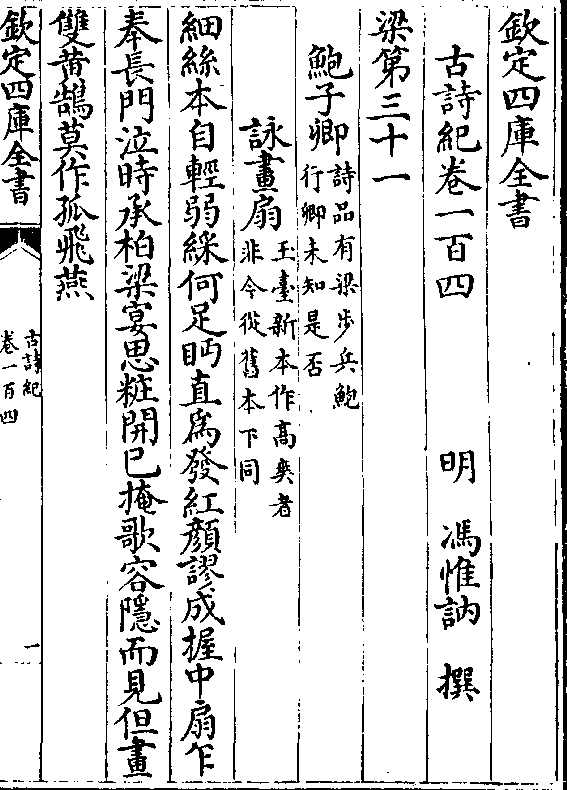 欽定四庫全書
古詩紀卷一百四 明 馮惟訥 撰
梁第三十一
鮑子卿 詩品有梁步兵鮑
行卿未知是否
詠畫扇 玉臺新本作高爽者
非今從舊本下同
細絲本自輕弱綵何足眄直為發紅顔謬成握中扇乍
奉長門泣時承柏梁宴思粧開已掩歌容隱而見但畫
雙黄鵠莫作孤飛燕
欽定四庫全書
古詩紀
卷一百四
一